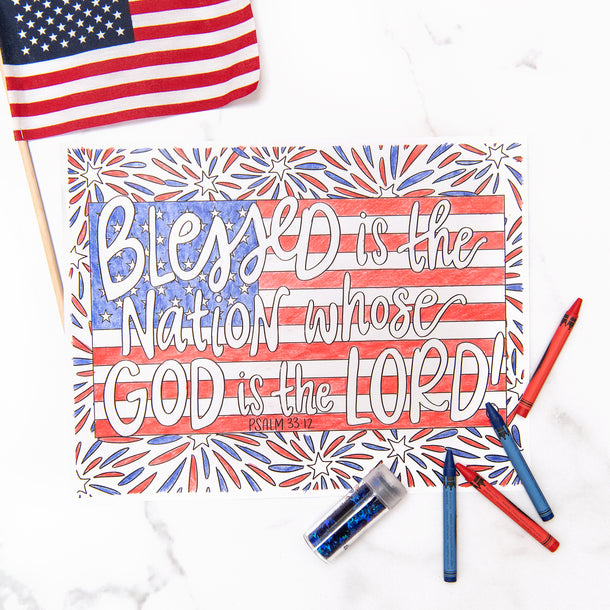 Blessed is the
Nation whose
GOD is the LORD!
PSALM 33:12